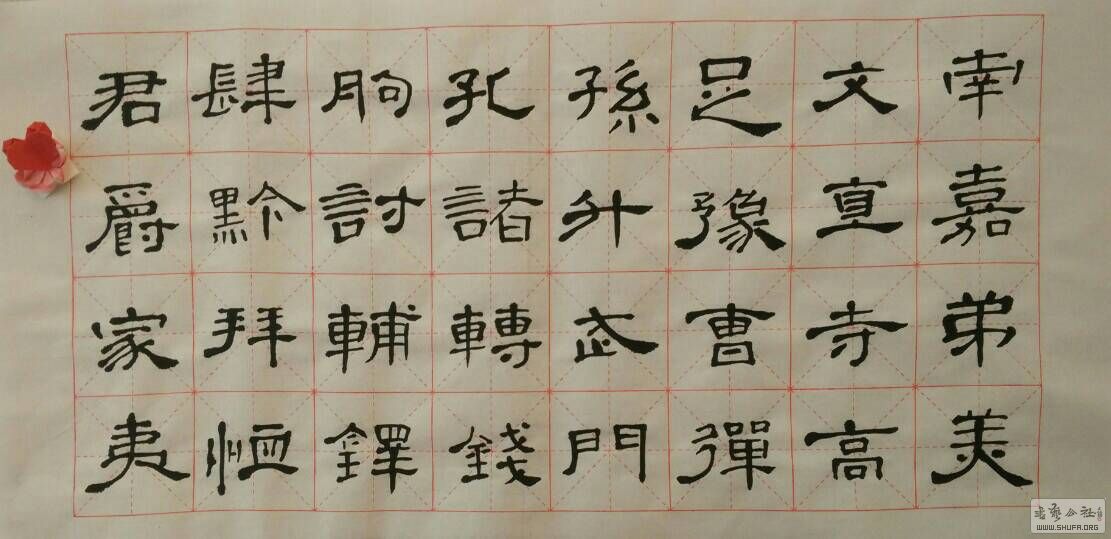 南嘉弟美
文宣寺高
足豫曹彈
孫外武門
孔諸轉錢
朐討輔鐸
肆黔拜恤
君爵家夷
書藝公社
WWW.SHUFA.ORG